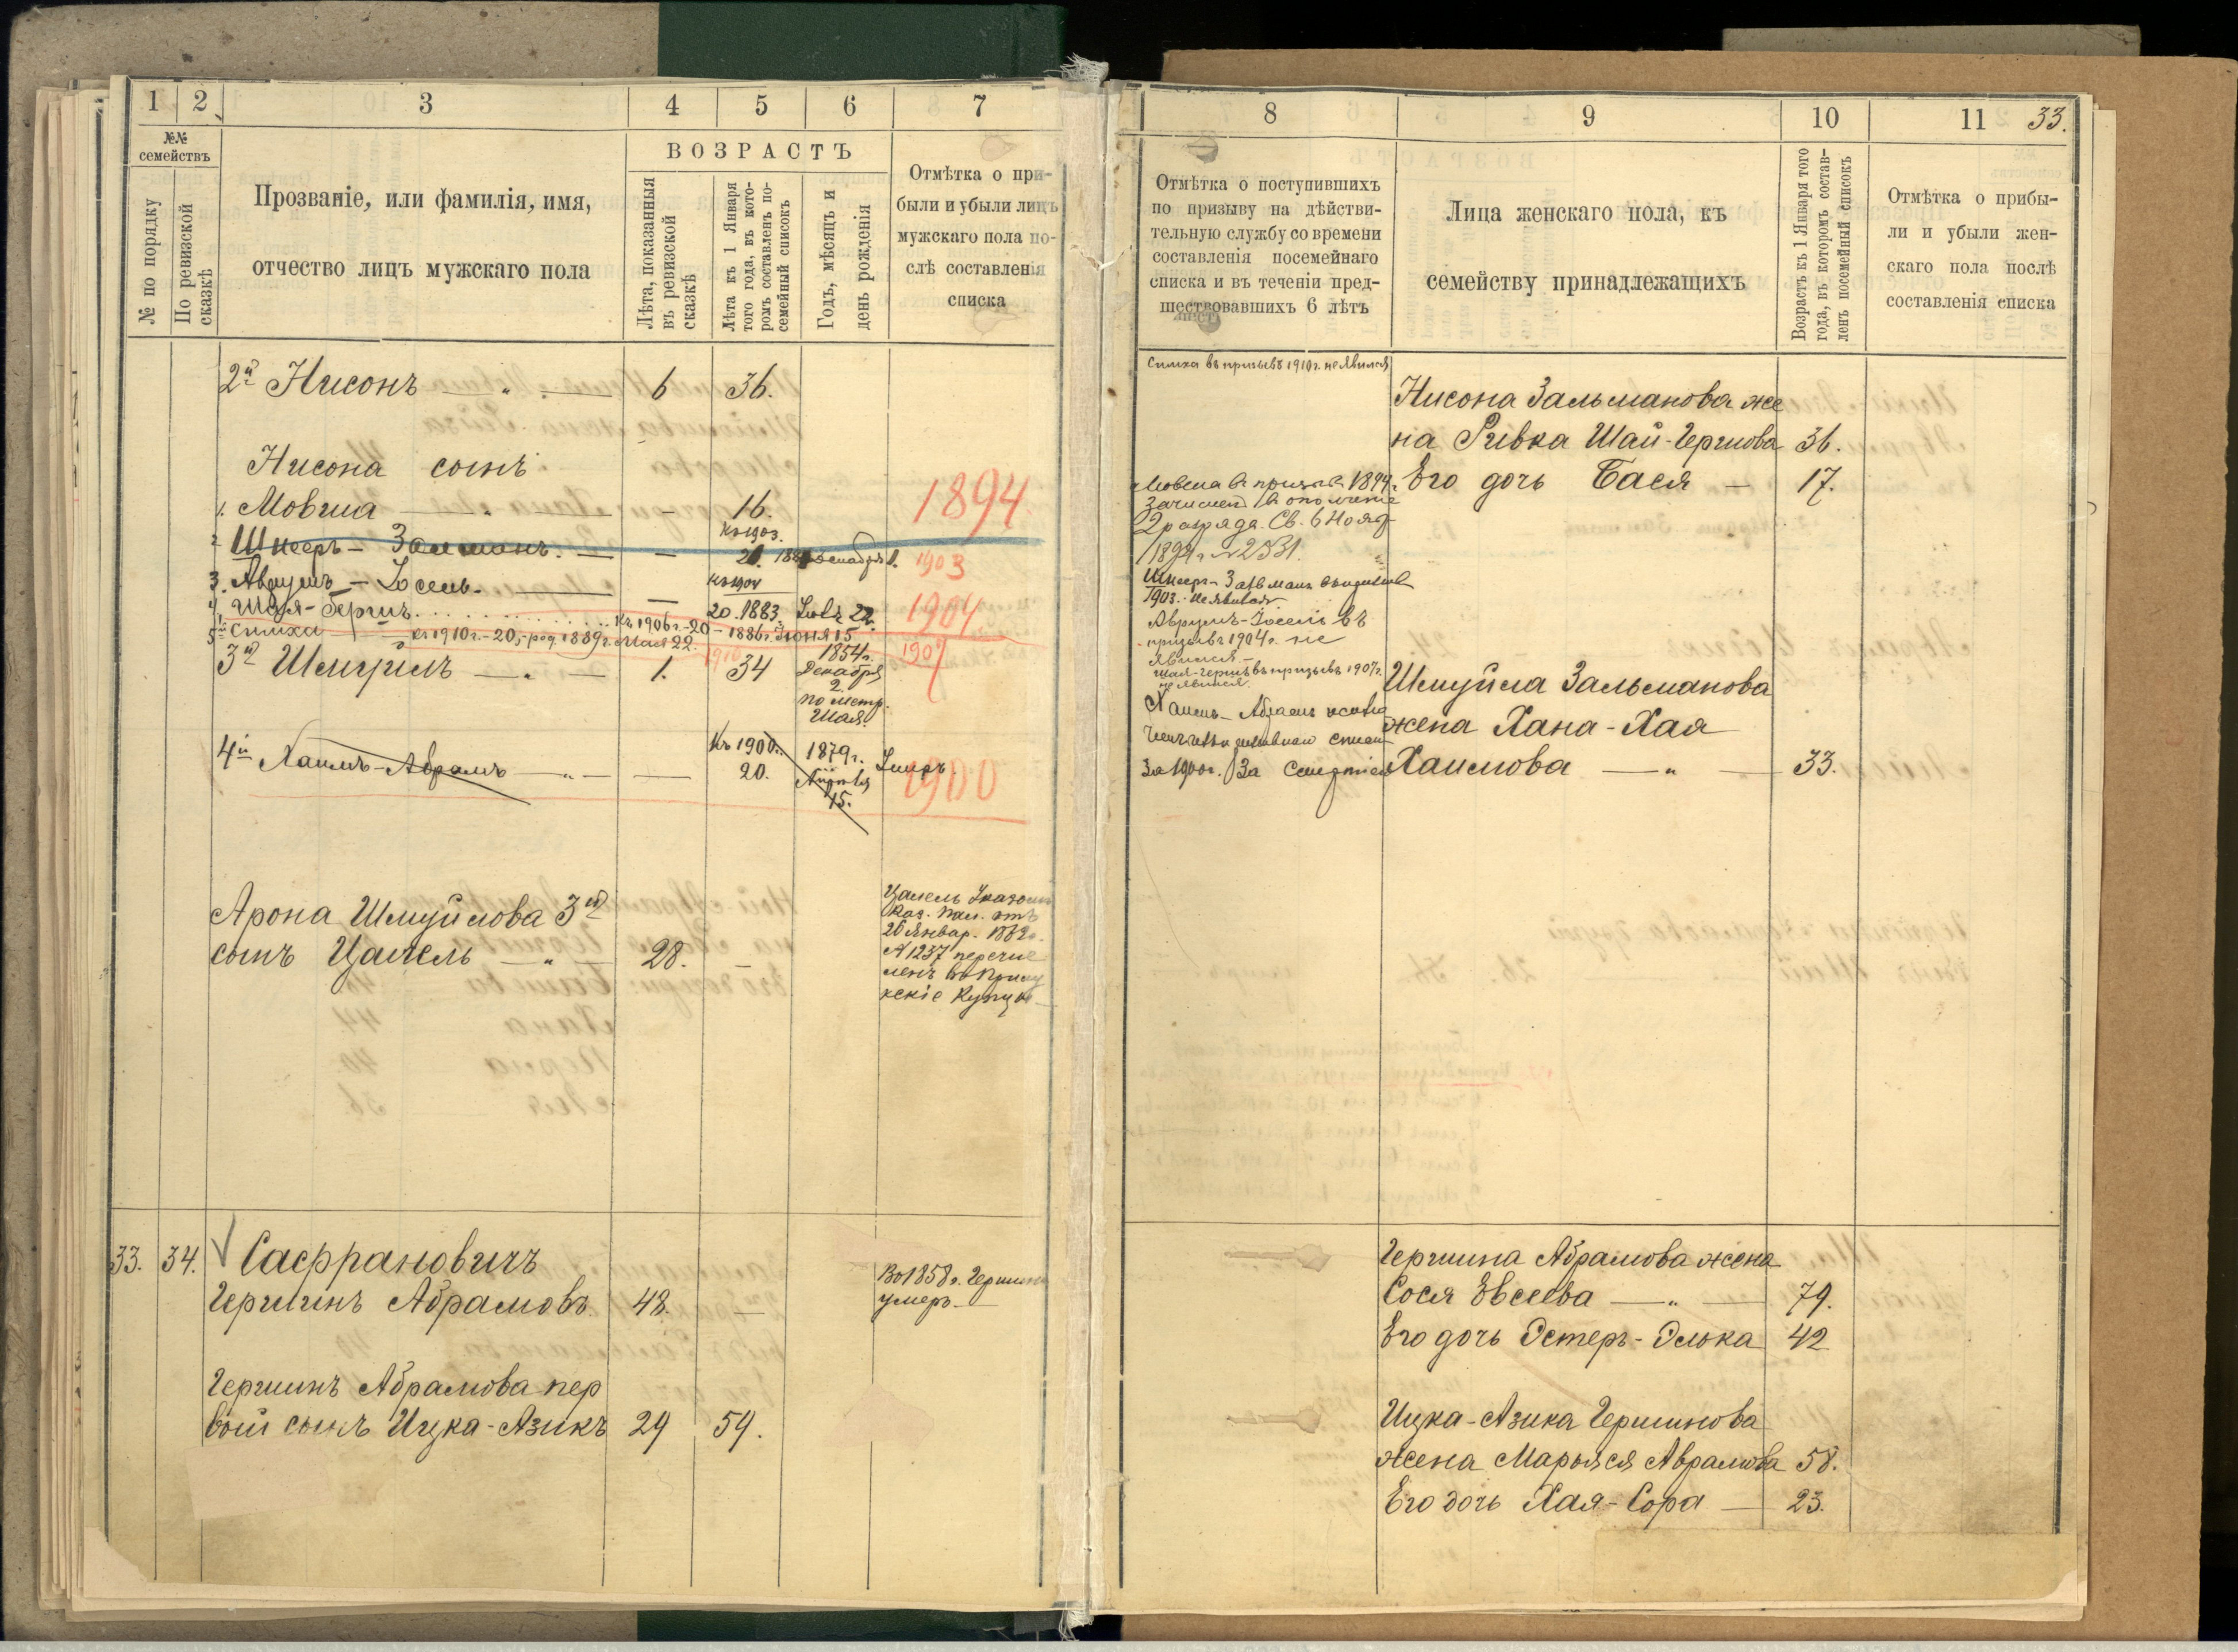 1 2 3 4 5 6 7
№№ семействъ
№ по порядку
По ревизской сказкѣ
Прозваніе, или фамилія, имя,
отчество лицъ мужскаго пола
ВОЗРАСТЪ
Лѣта, показанныя
въ ревизской
сказкѣ
Лѣта къ 1 Января
того года, въ кото-
ромъ составленъ по-
семейный списокъ
Годъ, мѣсяцъ и
день рожденія
Отмѣтка о при-
были и убыли лицъ
мужскаго пола по-
слѣ составленія
списка
2й Нисонъ — „ — 6 36.
Нисона сынъ
1. Мовша — „ — – 16. 1894
Къ 1903.
2 Шнееръ – Залманъ. — – 20. декабря 1. 1903
Къ 1904
3. Аврумъ – Іосель. — – 20. 1883. 22. 1904
4. Шая-Гершъ. Къ 1906 г. – 20 – 1886 г. Іюня 15 1907
5 Симха къ 1910 г. – 20, – род. 1889 г. Мая 22. 1910
3й Шмуйлъ — „ — 1. 34 1854 г.
Декабря
2.
по метр.
Шая.
4й Хаимъ-Абрамъ — „ — — Къ 1900 г.
20. 1879 г.
15. Умеръ 1900
Арона Шмуйлова 3й
сынъ Цалель — „ — 28. –
Цалель Указомъ
Каз. Пал. отъ
20 Январ.
№ 1237 перечис
ленъ въ Прилу
кскіе Купцы
33. 34. Сафрановичъ
Гершинъ Абрамовъ 48. —
Во 1858 г. Гершинъ
умеръ —
Гершинъ Абрамова пер
вый сынъ Ицка-Азикъ 29 59.
8 9 10 11 33.
Отмѣтка о поступившихъ
по призыву на дѣйстви-
тельную службу со времени
составленія посемейнаго
списка и въ теченіи пред-
шествовавшихъ 6 лѣтъ
Лица женскаго пола, къ
семейству принадлежащихъ
Возрастъ къ 1 Января того
года, въ которомъ состав-
ленъ посемейный списокъ
Отмѣтка о прибы-
ли и убыли жен-
скаго пола послѣ
составленія списка
Симха въ призывъ 1910 г. не явился
Нисона Зальманова же
на Ривка Шай-Гершова 36.
Его дочь Бася — 17.
Мовша въ призывъ 1894 г.
Зачисленъ въ ополченіе
2 разряда. Св. 6 Нояб.
1894 г. № 2531.
Шнееръ-Залманъ въ призывъ
1903. не явился
Аврумъ-Іосель въ
призывъ 1904 г. не
явился –
Шая-Гершъ въ призывъ 1907 г.
не явился.
Хаимъ-Абрамъ исклю
ченъ изъ призывнаго списка
За 1900 г. За смертью
Шмуйла Зальманова
жена Хана-Хая
Хаимова — „ — 33.
Гершина Абрамова жена
Сося Евсеева — „ — 79.
Его дочь Эстеръ-Элька 42
Ицка-Азика Гершинова
жена Марьяся Аврамова 58.
Его дочь Хая-Сора — 23.